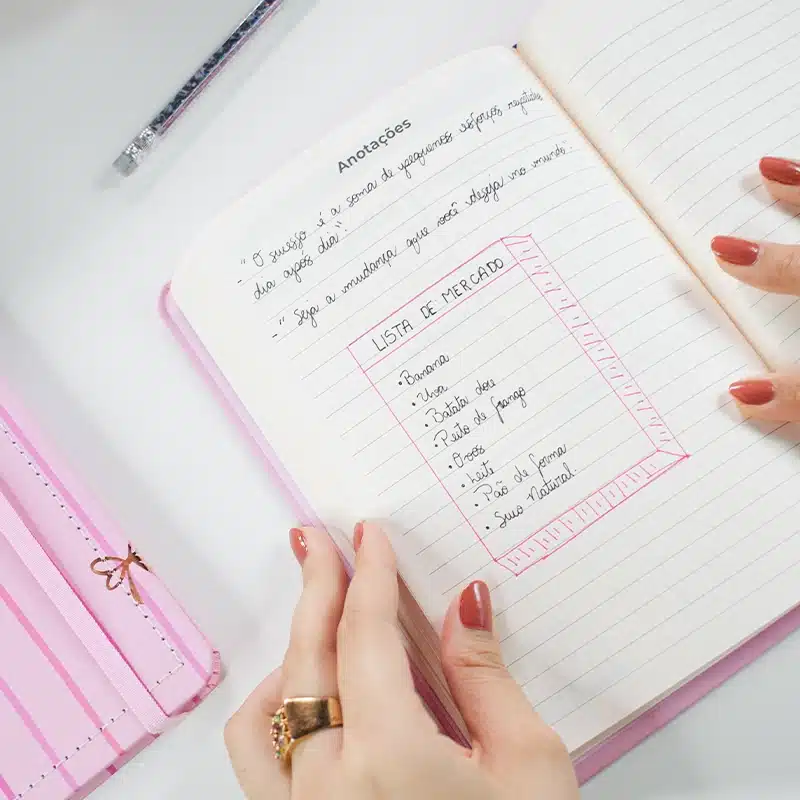 Anotações
- "O sucesso é a soma de pequenos esforços repetidos
dia após dia".
- "Seja a mudança que você deseja no mundo".
LISTA DE MERCADO
• Banana
• Uva
• Batata doce
• Peito de frango
• Ovos
• Leite
• Pão de forma
• Suco Natural.